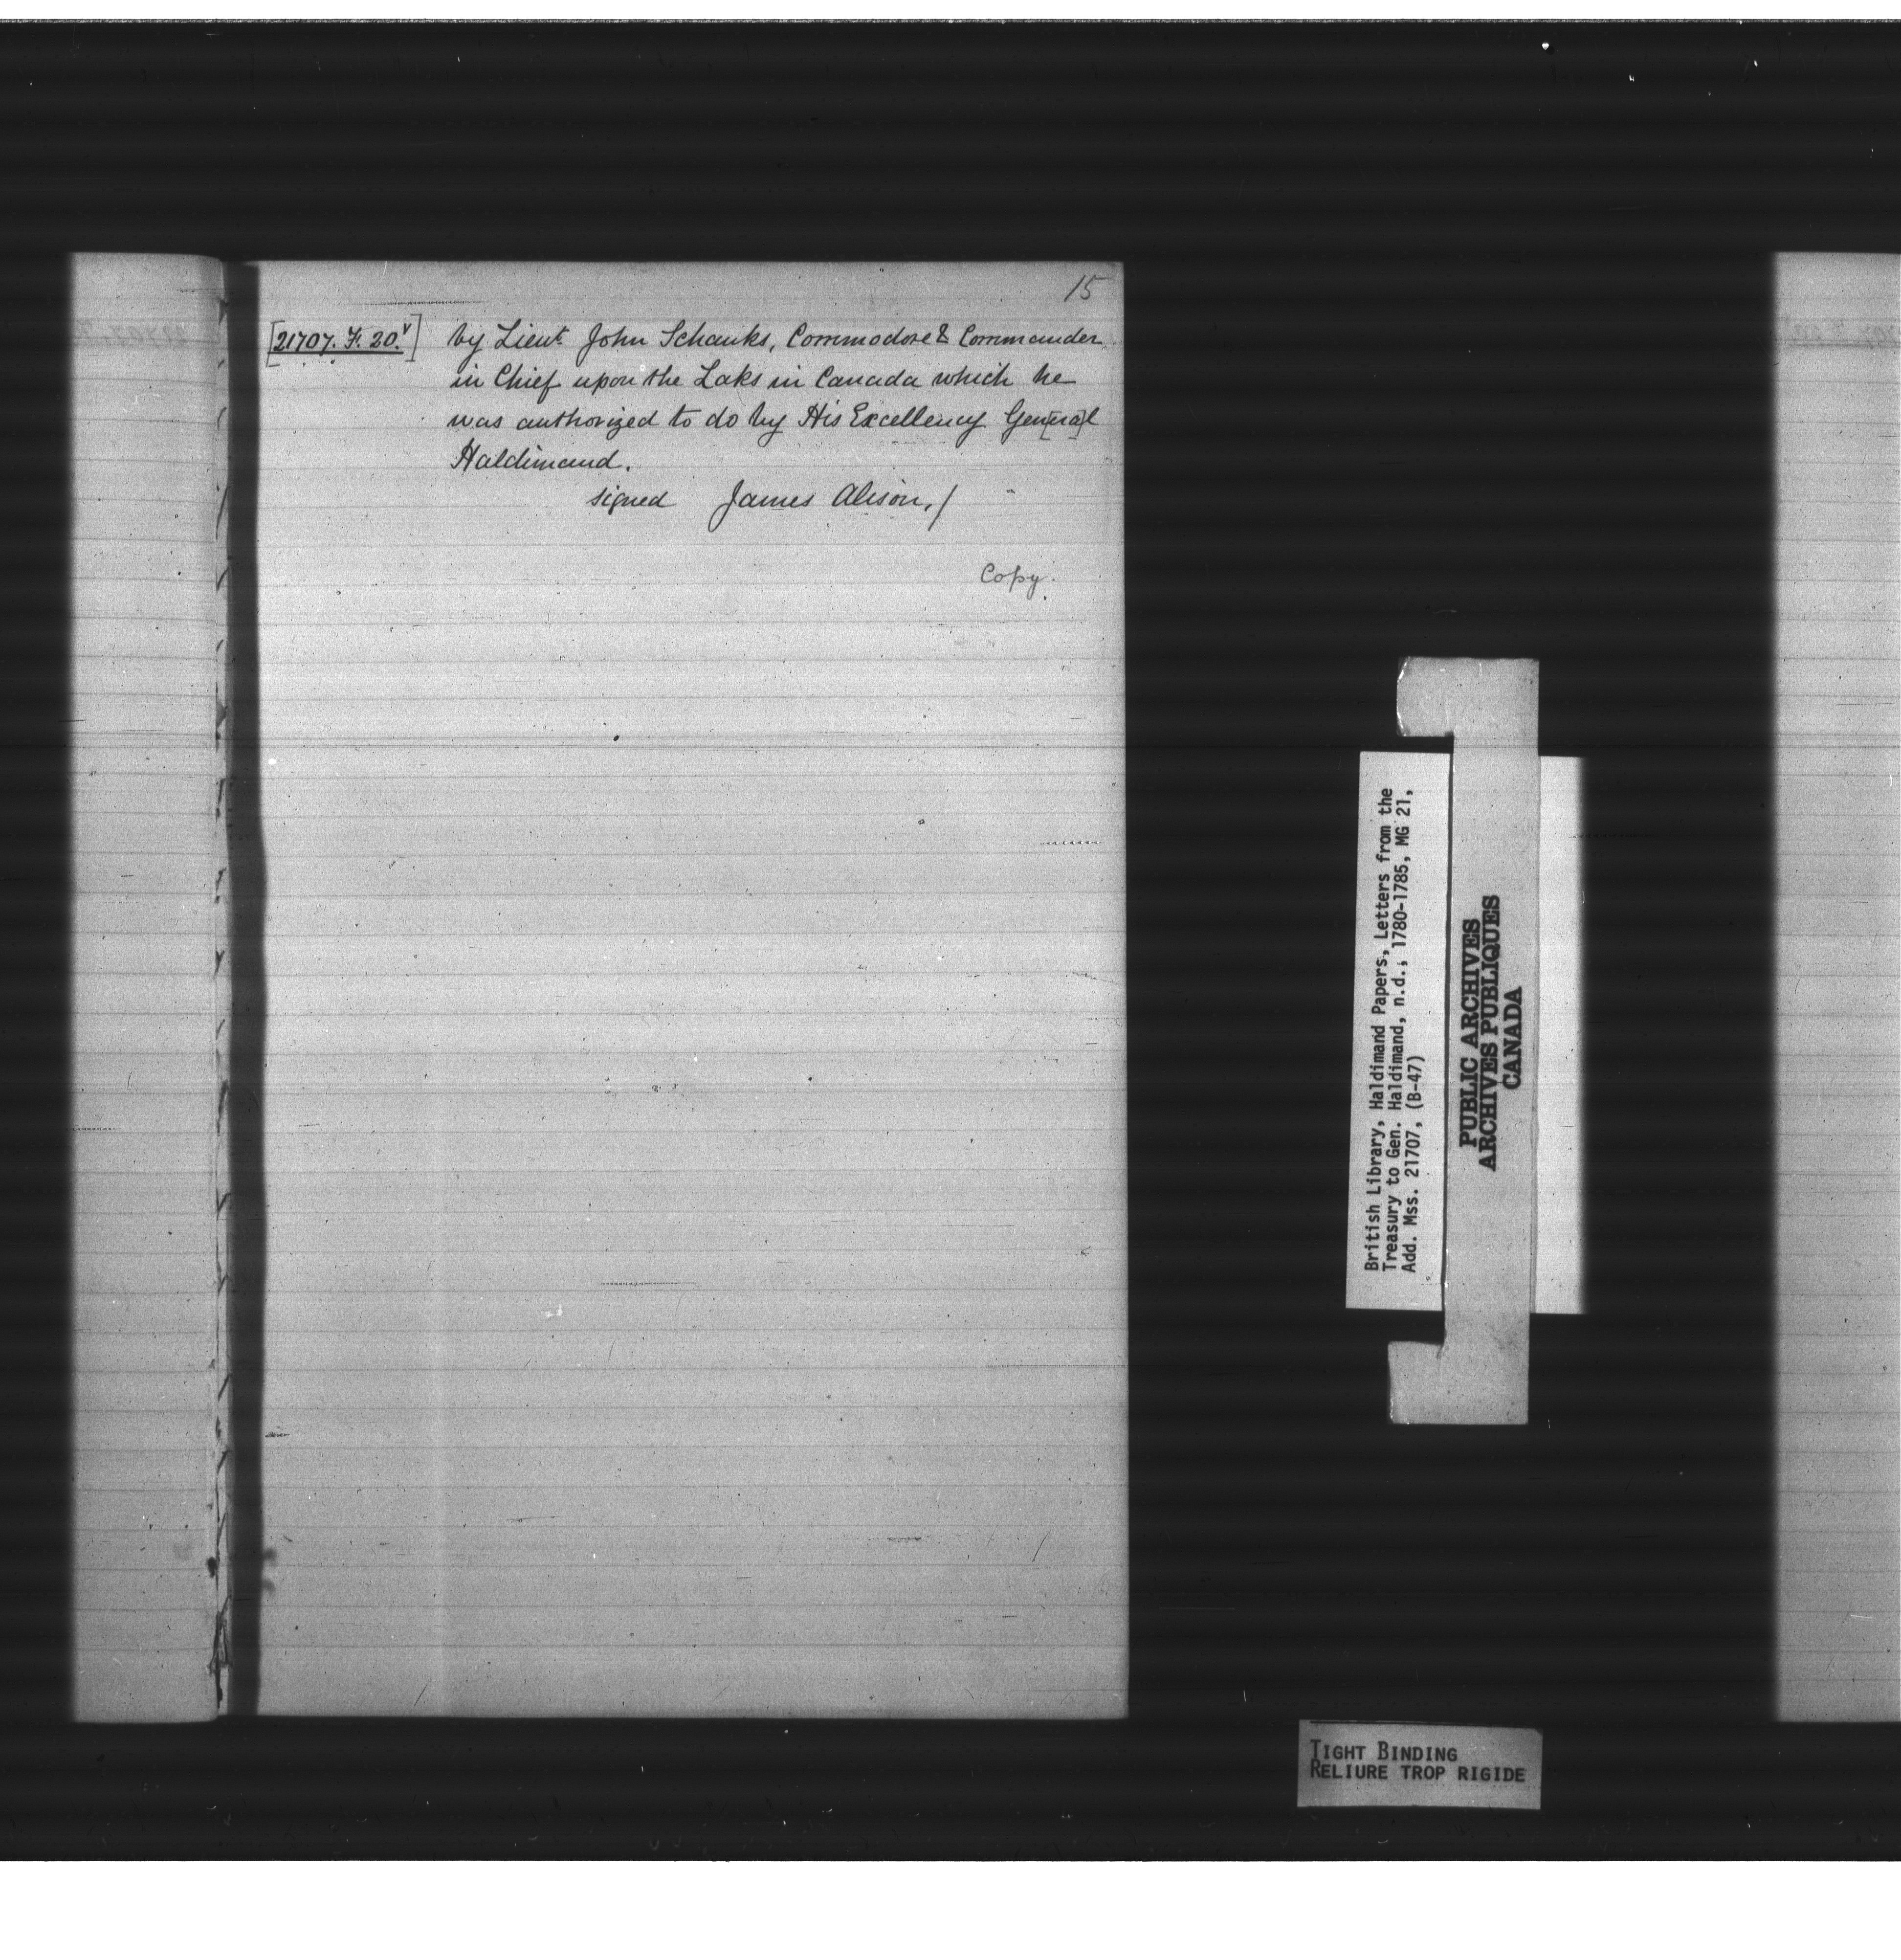 15
[21707. F. 20.v]
by Lieut. John Schanks, Commodore & Commander
in Chief upon the Laks in Canada which he
was authorized to do by His Excellency Gen[era]l
Haldimand.
signed James Alison,/
Copy.
British Library, Haldimand Papers, Letters from the
Treasury to Gen. Haldimand, n.d., 1780-1785, MG 21,
Add. Mss. 21707, (B-47)
PUBLIC ARCHIVES
ARCHIVES PUBLIQUES
CANADA
TIGHT BINDING
RELIURE TROP RIGIDE